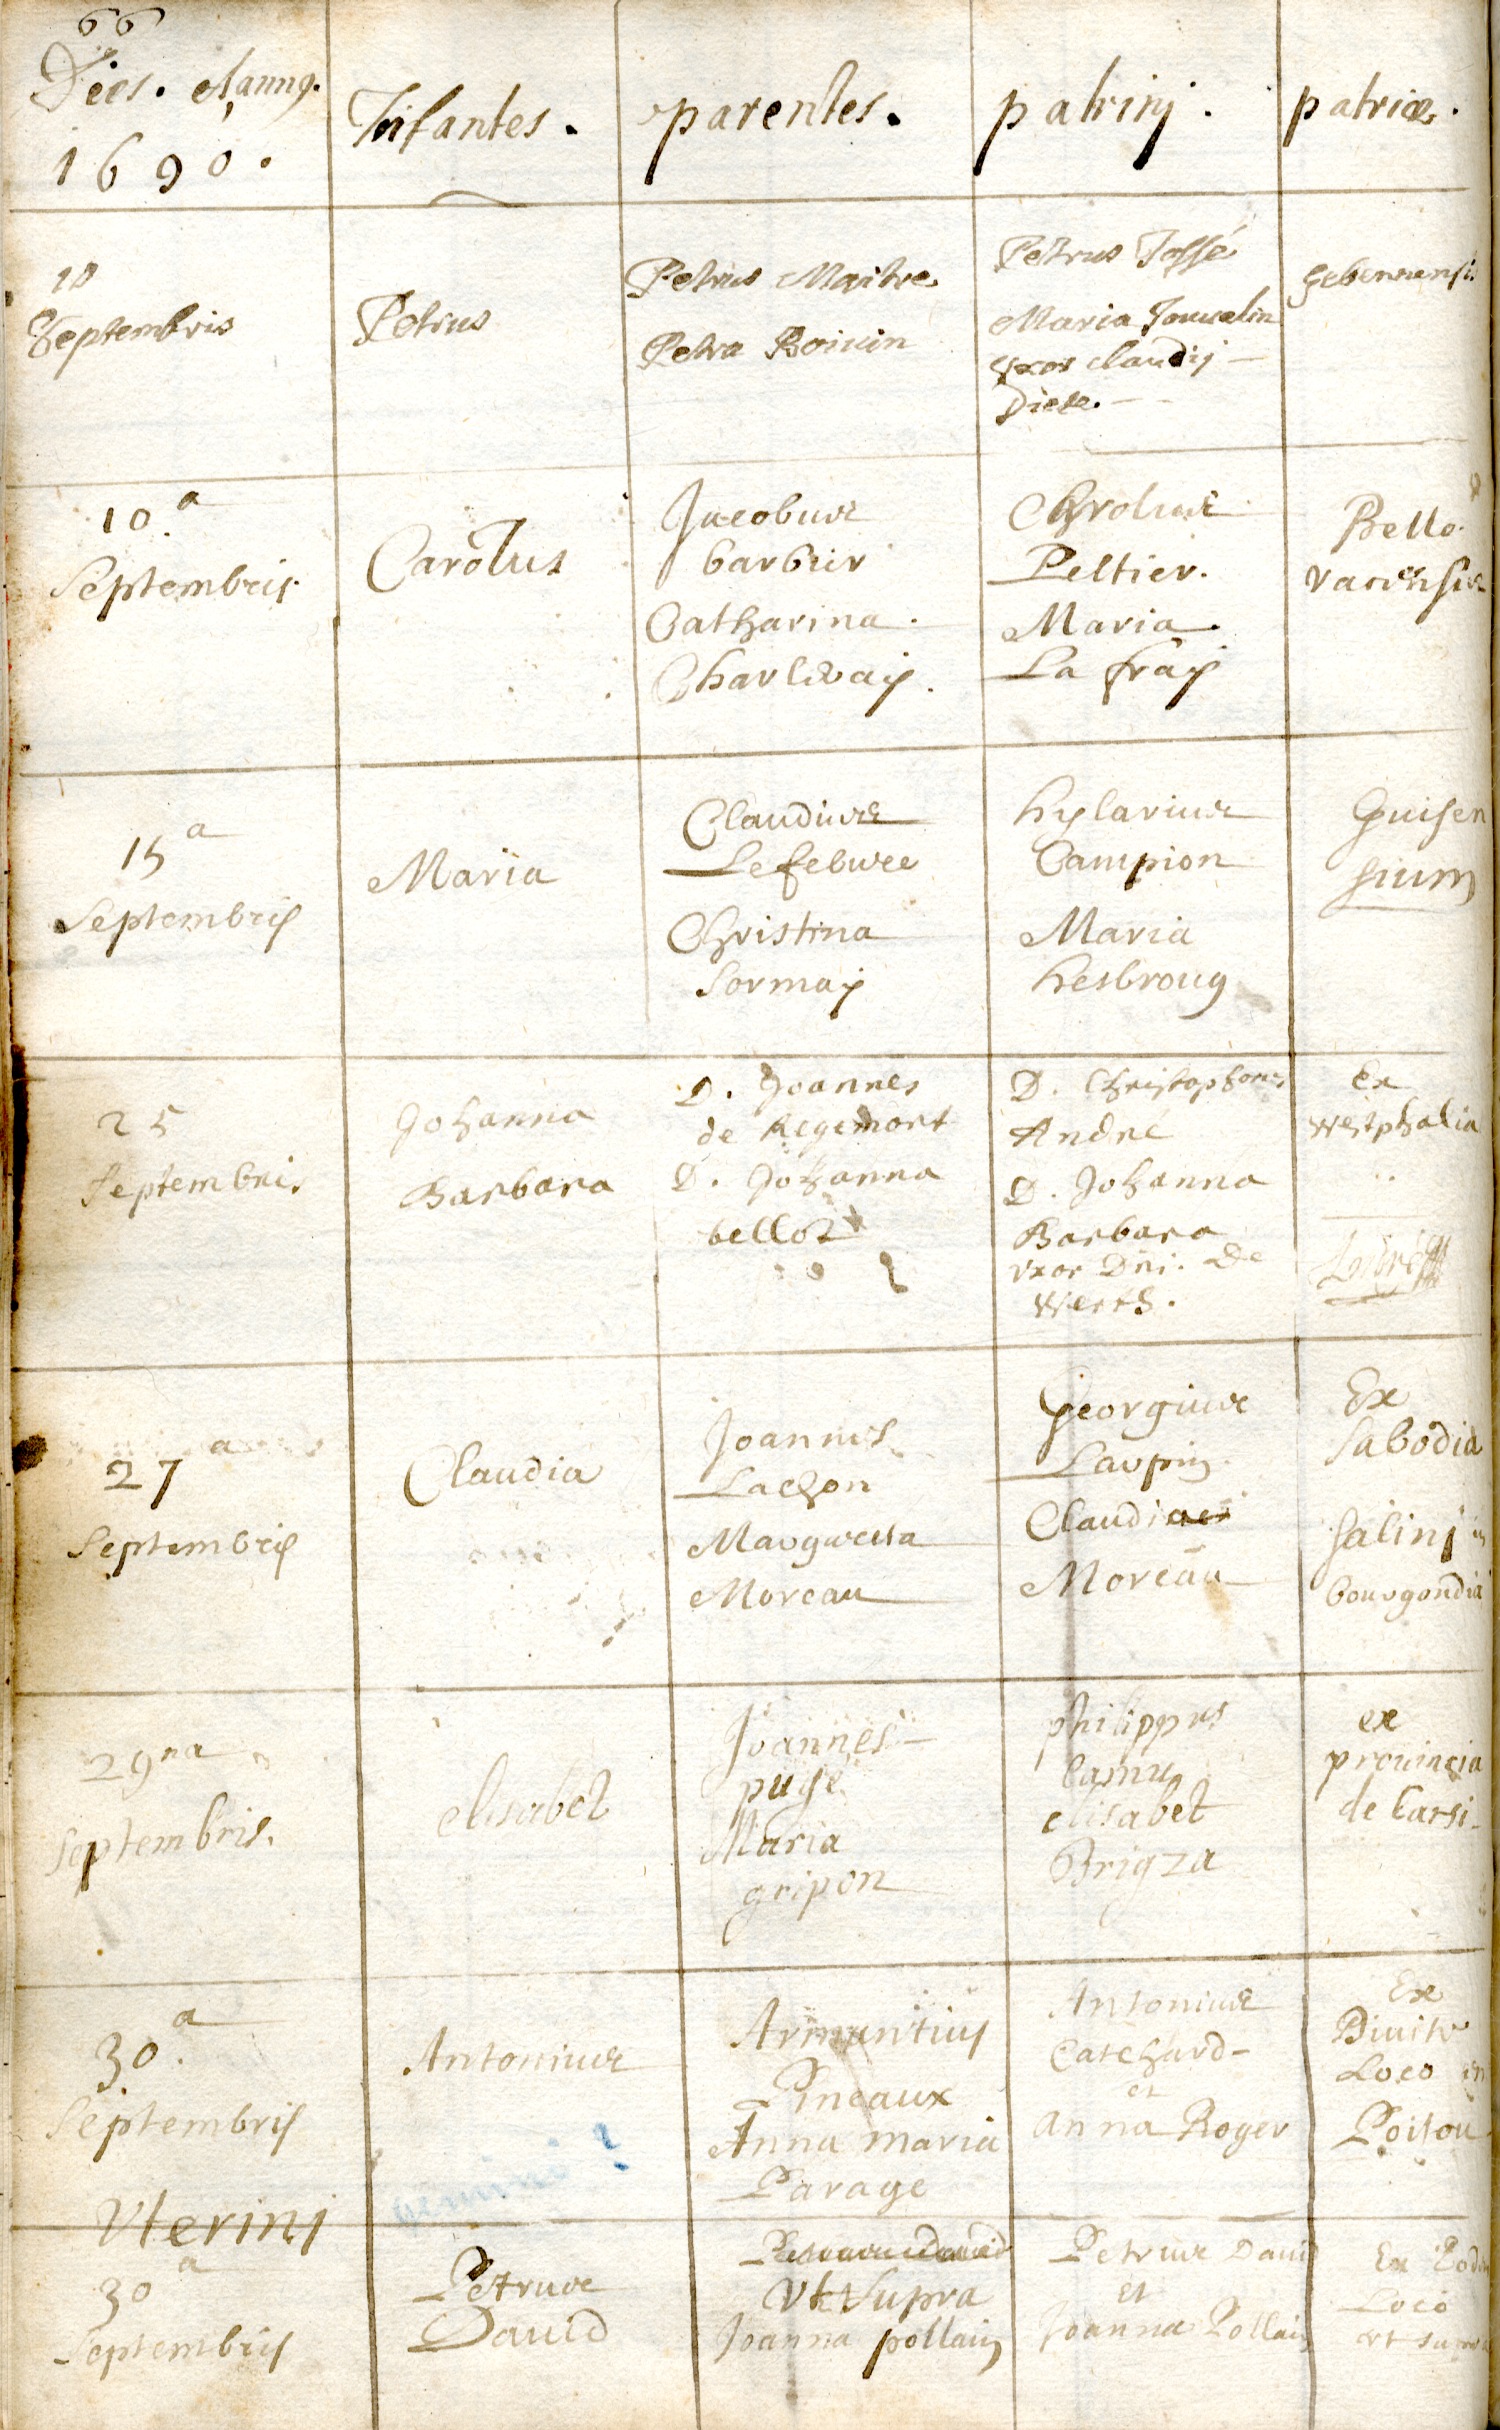 66
Dies. et annq.
1690.
Infantes.
parentes.
patrinj.
patriæ.
10
Septembris
Petrus
Petrus Maitre
Petra Boiuin
Petrus Jossé
Maria Jouuelin
vxor claudij
Diete.
gebennensis
10.a
Septembris
Carolus
Jacobus
barbier
Catharina.
Charlevaij.
Peltier.
Maria
La fraij
Bello
vacensis
15a
Septembris
Maria
Claudius
Lefebure
Christina
Sormaij
hylarius
Campion
Maria
hesbroug
Guisen
sium
25
Septembris
Johanna
Barbara
D. Joannes
de Regemort
D. Johanna
bellot
D. Christophorus
André
D. Johanna
Barbara
vxor Dni. De
Werth.
Ex
westphalia
27a
Septembris
Claudia
Joannes
Lachon
Margareta
Moreau
Georgius
Laupin
Claudia
Moreau
Ex
Sabodia
Salinj in
bourgondia
29na
Septembris.
elisabet
Joannes
puge
Maria
gripon
philippus
Camu
elisabet
Brigza
ex
prouincia
de Carsi
30.a
Septembris
Antonius
Armantius
Pineaux
Anna maria
Parage
Antonius
Catchard
et
anna Roger
Ex
Diuite
Loco in
Poitou
Vterinj
gemini
30a
Septembris
Petrus
Dauid
Vt Supra
Joanna pollain
Petrus Dauid
et
Joanna Pollain
Ex Eodem
Loco
vt supra